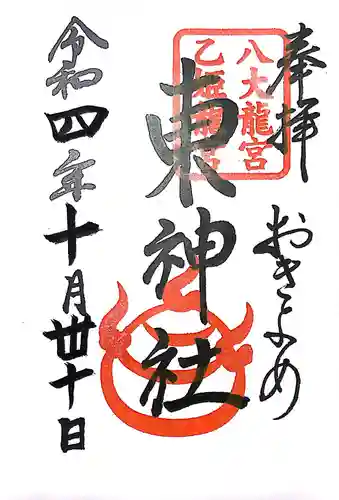 奉拝
おきよめ
八大龍宮
乙姫龍宮
東神社
令和四年十月卅十日